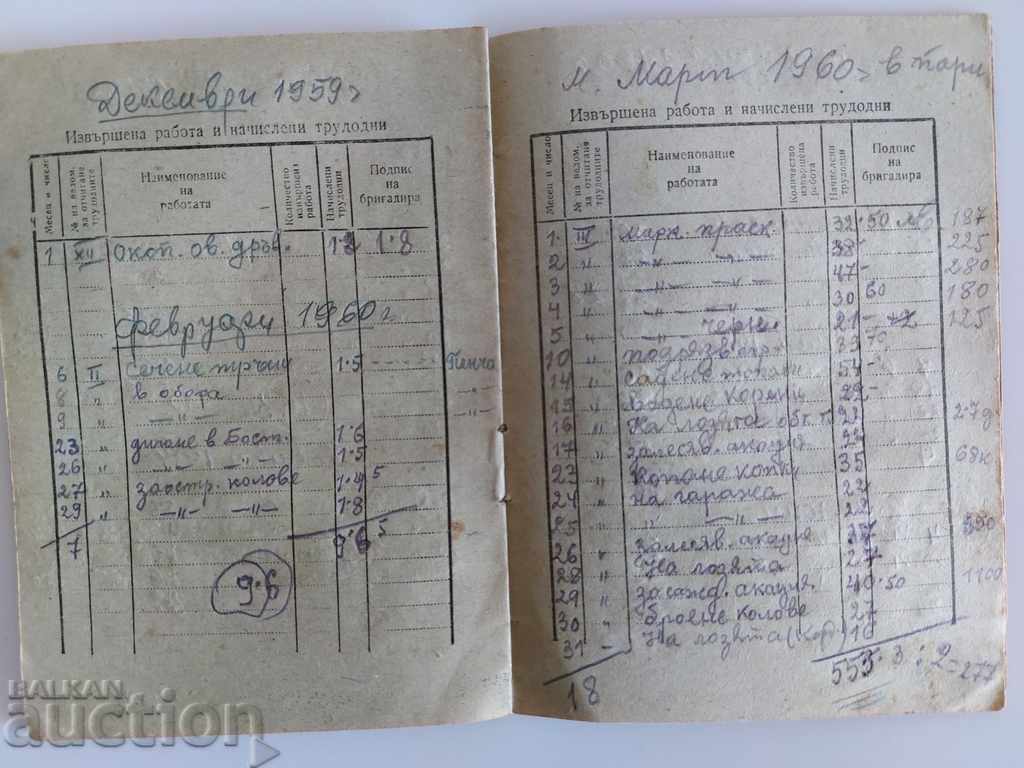 Декември 1959 г
Извършена работа и начислени трудодни
Месец и число
№ на ведом. за отчитане трудодните
Наименование на работата
Количество извършена работа
Начислени трудодни
Подпис на бригадира
1 XII окоп. ов. дръв. 1·8
Февруари 1960 г
6 II сечене пръчки 1·5 Пенча
8 " в обора
9 " —"—
23 " дигане в Баст. 1·6
26 " —"— —"— 1·5
27 " заостр. колове 1·4 5
29 " —"— —"— 1·8
7 9·6 5
9·6
м. Март 1960 г в пари
Извършена работа и начислени трудодни
Месец и число
№ на ведом. за отчитане трудодните
Наименование на работата
Количество извършена работа
Начислени трудодни
Подпис на бригадира
1 III марк. праск. 32·50 187
2 " —"— —"— 38 225
3 " —"— —"— 47 - 280
4 " —"— —"— 30 60 180
5 " —"— черн. 21 - 125
10 " подрязв. 70
14 " Садене 54 -
15 " Вадене корени 22 -
16 " На лозята 2·7 д
17 " залесяв. акация 68 к
23 " Копане копки 35
24 " На гаража 22
25 " " —"—
26 " залесяв. акация 27
28 " На лозята 27
29 " засажд. акация. 40·50 1100
30 " броене колове 27
31 - На лозята (Кор) 10
18 553·3 : 2 = 277
BALKAN
auction